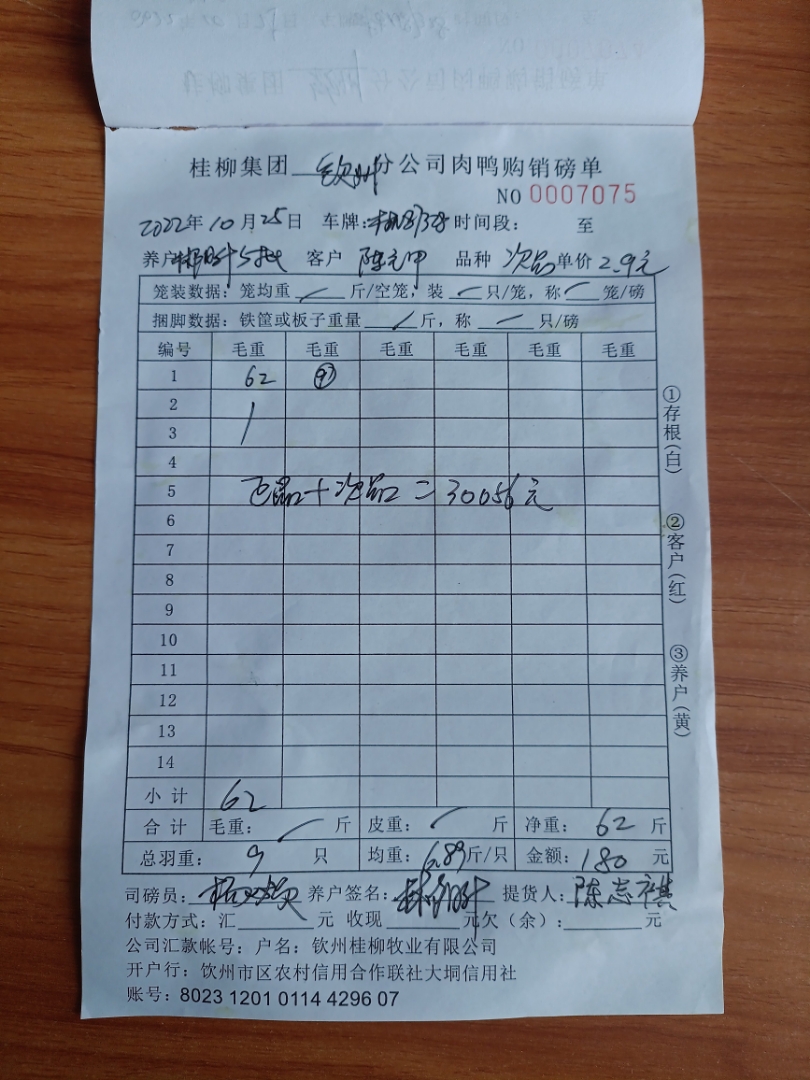 桂柳集团 钦州 分公司肉鸭购销磅单
NO 0007075
2022年10月25日 车牌: 时间段: 至
养户 客户 陈元甲 品种 次品 单价 2.9元
笼装数据: 笼均重 / 斤/空笼, 装 / 只/笼, 称 / 笼/磅
捆脚数据: 铁筐或板子重量 / 斤, 称 / 只/磅
编号 毛重 毛重 毛重 毛重 毛重 毛重
1 62 ⑨
2
3
4
5 正品+次品=30056元
6
7
8
9
10
11
12
13
14
小计 62
合计 毛重: / 斤 皮重: / 斤 净重: 62 斤
总羽重: 9 只 均重: 6.89斤/只 金额: 180 元
司磅员: 养户签名: 提货人: 陈志祺
付款方式: 汇 元 收现 元欠(余): 元
公司汇款帐号: 户名: 钦州桂柳牧业有限公司
开户行: 钦州市区农村信用合作联社大垌信用社
账号: 8023 1201 0114 4296 07
①存根(白)
②客户(红)
③养户(黄)